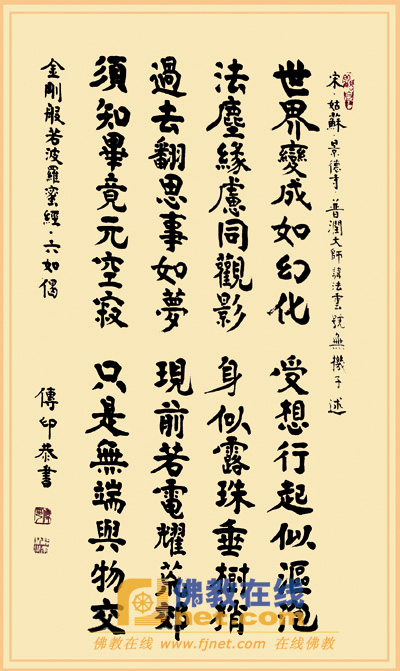 宋·姑蘇·景德寺·普潤大師諱法雲號無機子 述
世界變成如幻化 受想行起似漚泡
法塵緣慮同觀影 身似露珠垂樹梢
過去翻思事如夢 現前若電耀荒郊
須知畢竟元空寂 只是無端與物交
金剛般若波羅蜜經·六如偈
傳印恭書
佛教在线
佛教在线 www.fjnet.com 在线佛教